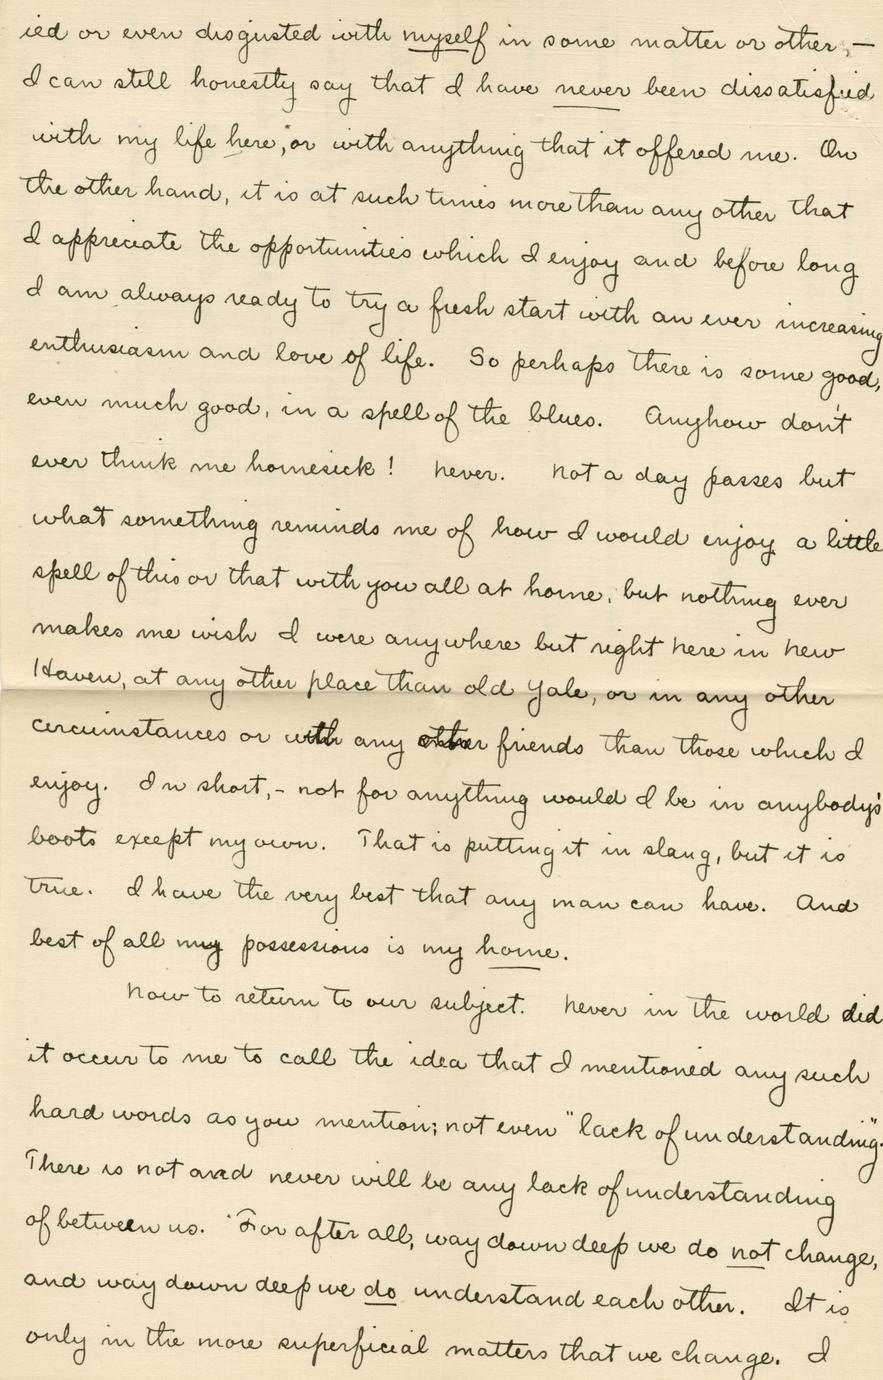 ied or even disgusted with myself in some matter or other, —
I can still honestly say that I have never been dissatisfied
with my life here, or with anything that it offered me. On
the other hand, it is at such times more than any other that
I appreciate the opportunities which I enjoy and before long
I am always ready to try a fresh start with an ever increasing
enthusiasm and love of life. So perhaps there is some good,
even much good, in a spell of the blues. Anyhow don't
ever think me homesick! Never. Not a day passes but
what something reminds me of how I would enjoy a little
spell of this or that with you all at home, but nothing ever
makes me wish I were anywhere but right here in New
Haven, at any other place than old Yale, or in any other
circumstances or with any other friends than those which I
enjoy. In short, - not for anything would I be in anybody's
boots except my own. That is putting it in slang, but it is
true. I have the very best that any man can have. And
best of all my possessions is my home.
Now to return to our subject. Never in the world did
it occur to me to call the idea that I mentioned any such
hard words as you mention; not even "lack of understanding".
There is not and never will be any lack of understanding
of between us. For after all, way down deep we do not change,
and way down deep we do understand each other. It is
only in the more superficial matters that we change. I